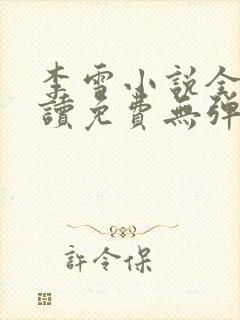 李雪小說全
讀免費無彈
許令保